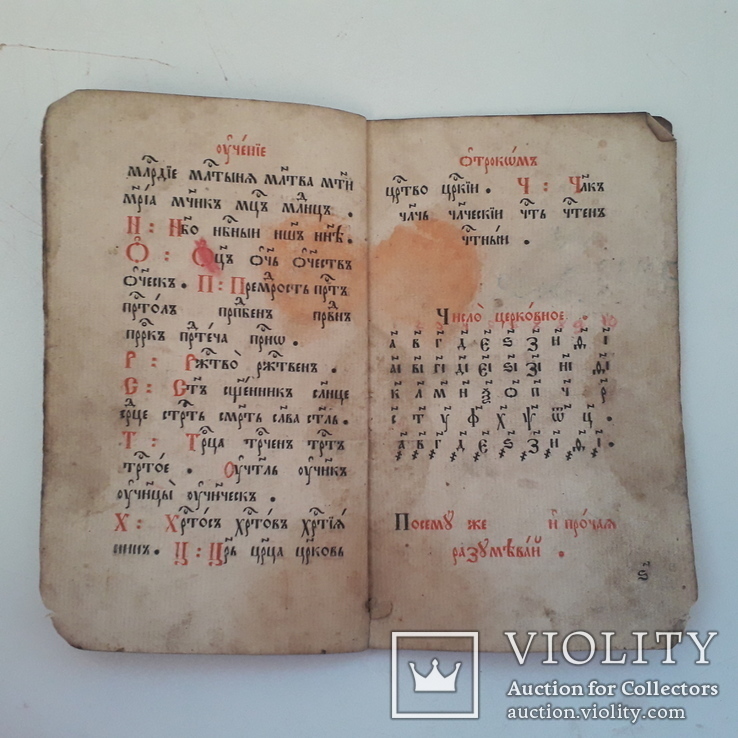 оу҆че́нїе
млⷭ҇рдїе млⷭ҇тынѧ мл҃тва мт҃й
мр҃їа мч҃нкъ мц҃ъ млⷣнцъ .
Н : Нб҃о нбⷭ҇ный нн҃ѣ .
Ѻ҆ : Ѻ҆ц҃ъ ѻ҆ч҃ь ѻ҆ч҃ествъ
ѻ҆ч҃ескъ . П : Премⷣрость прⷭ҇тъ
прⷭ҇толъ прⷣвнъ
прⷪ҇ркъ прⷣтеча
Р : Ржⷭ҇тво̀ ржⷭ҇твенъ .
С : Ст҃ъ сщ҃е́нникъ сл҃нце
срⷣце стрⷭ҇ть смр҃ть сла́ва
Т : Трⷪ҇ца трⷪ҇ченъ
трⷭ҇тое . Оу҆чт҃ль оу҆чн҃къ
оу҆чн҃цы̀ оу҆чн҃ческъ .
Х : Хрⷭ҇то́съ хрⷭ҇то́въ хрⷭ҇тїѧ́
нинъ . Ц : Цр҃ь цр҃ца цр҃ковь
ѻ҆трокѡ́мъ
црⷭ҇тво црⷭ҇кїи . Ч : Чл҃къ
чл҃чь чл҃ческїи чтⷭ҇ь чтⷭ҇енъ
чтⷭ҇ный .
Число̀ церко́вное .
а в г д є ѕ з и ѳ і
аі ві гі ді єі ѕі зі иі ѳі к
к л м н ѯ о п ч р
с т у ф х ѱ ѿ ц .
҂а ҂в ҂г ҂д ҂є ҂ѕ ҂з ҂и ҂ѳ ҂і .
Посемꙋ же и҆ про́чаѧ
разꙋмѣва́й .
VIOLITY
Auction for Collectors
auction.violity.com